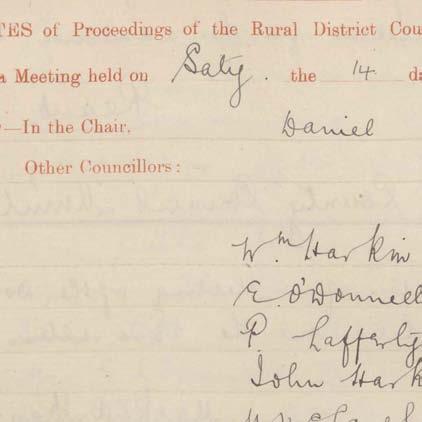 TES of Proceedings of the Rural District Cou
a Meeting held on Saty. the 14 da
—In the Chair, Daniel
Other Councillors:
Wm Harkin
E. O'Donnell
P. Lafferty
John Hark